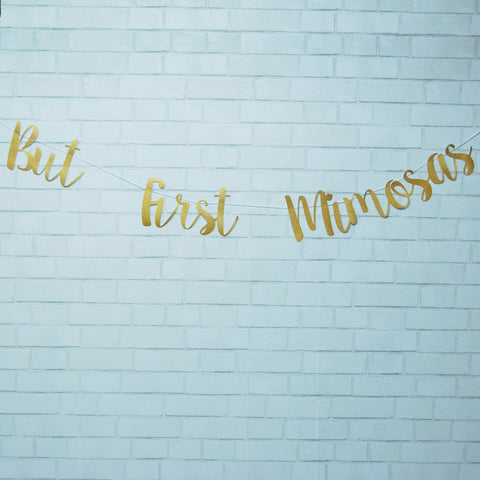 But first Mimosas